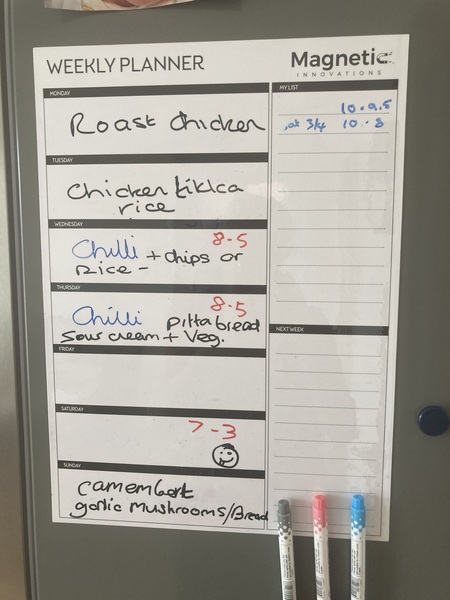 WEEKLY PLANNER
Magnetic
INNOVATIONS
MONDAY
Roast Chicken
TUESDAY
Chicken tikka
rice
WEDNESDAY
8-5
Chilli + chips or
Rice -
THURSDAY
8.5
Chilli pitta bread
sour cream + Veg.
FRIDAY
SATURDAY
7-3
SUNDAY
camembert
garlic mushrooms/Bread
MY LIST
10.9.5
at 3/4 10..8
NEXT WEEK